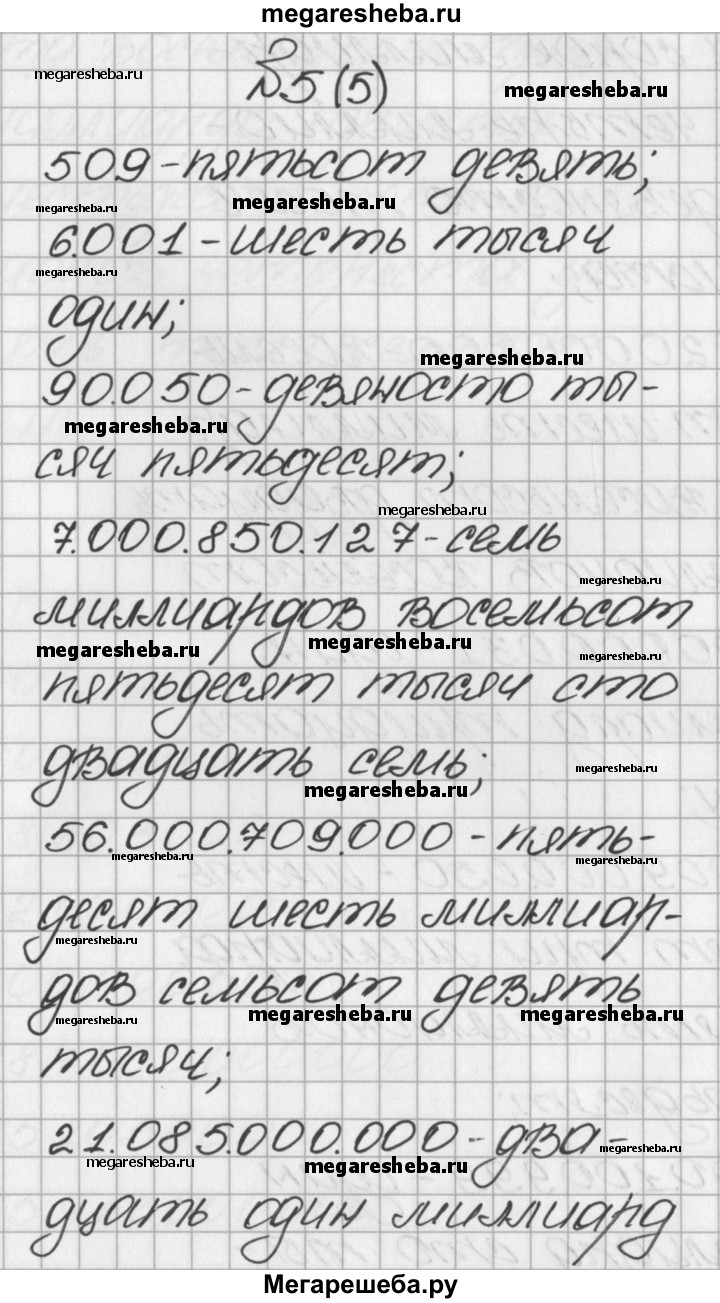 megaresheba.ru
№5 (5)
megaresheba.ru
megaresheba.ru
509 - пятьсот девять;
megaresheba.ru
megaresheba.ru
6.001 - шесть тысяч
megaresheba.ru
один;
megaresheba.ru
90.050 - девяносто ты-
megaresheba.ru
сяч пятьдесят;
megaresheba.ru
7.000.850.127 - семь
megaresheba.ru
миллиардов восемьсот
megaresheba.ru
megaresheba.ru
megaresheba.ru
пятьдесят тысяч сто
двадцать семь;
megaresheba.ru
megaresheba.ru
56.000.709.000 - пять-
megaresheba.ru
megaresheba.ru
десят шесть миллиар-
megaresheba.ru
дов семьсот девять
megaresheba.ru
megaresheba.ru
megaresheba.ru
тысяч;
21.085.000.000 - два-
megaresheba.ru
megaresheba.ru
megaresheba.ru
дцать один миллиард
Мегарешеба.ру